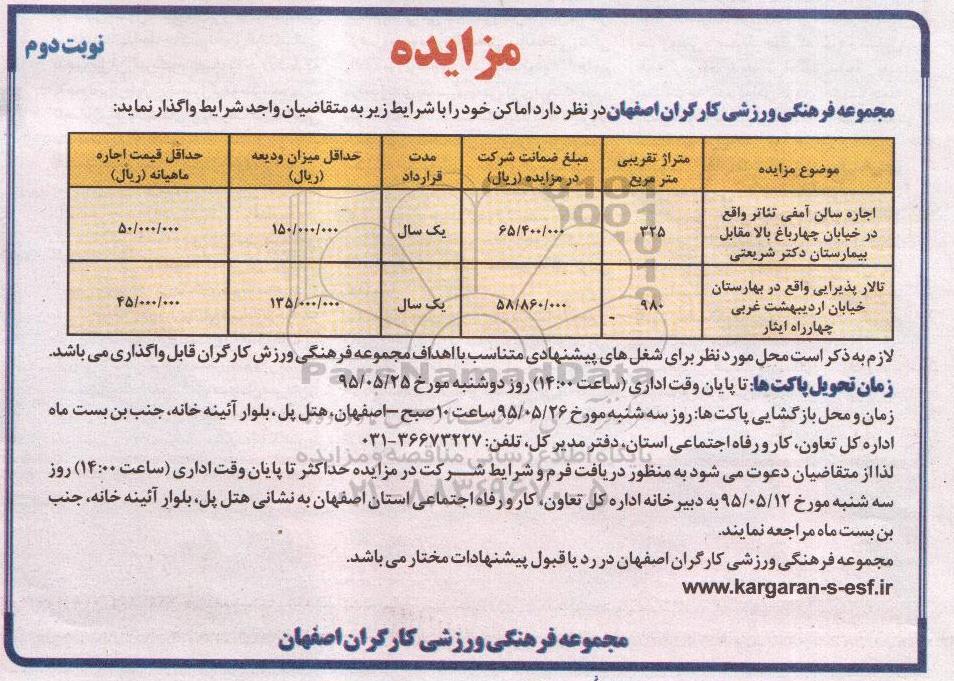 مزایده
نوبت دوم
مجموعه فرهنگی ورزشی کارگران اصفهان در نظر دارد اماکن خود را با شرایط زیر به متقاضیان واجد شرایط واگذار نماید:
موضوع مزایده | متراژ تقریبی متر مربع | مبلغ ضمانت شرکت در مزایده (ریال) | مدت قرارداد | حداقل میزان ودیعه (ریال) | حداقل قیمت اجاره ماهیانه (ریال)
اجاره سالن آمفی تئاتر واقع در خیابان چهارباغ بالا مقابل بیمارستان دکتر شریعتی | ۳۲۵ | ۶۵/۴۰۰/۰۰۰ | یک سال | ۱۵۰/۰۰۰/۰۰۰ | ۵۰/۰۰۰/۰۰۰
تالار پذیرایی واقع در بهارستان خیابان اردیبهشت غربی چهارراه ایثار | ۹۸۰ | ۵۸/۸۶۰/۰۰۰ | یک سال | ۱۳۵/۰۰۰/۰۰۰ | ۴۵/۰۰۰/۰۰۰
لازم به ذکر است محل مورد نظر برای شغل های پیشنهادی متناسب با اهداف مجموعه فرهنگی ورزش کارگران قابل واگذاری می باشد.
زمان تحویل پاکت ها: تا پایان وقت اداری (ساعت ۱۴:۰۰) روز دوشنبه مورخ ۹۵/۰۵/۲۵
زمان و محل بازگشایی پاکت ها: روز سه شنبه مورخ ۹۵/۰۵/۲۶ ساعت ۱۰ صبح – اصفهان، هتل پل، بلوار آئینه خانه، جنب بن بست ماه
اداره کل تعاون، کار و رفاه اجتماعی استان، دفتر مدیر کل، تلفن: ۳۶۶۷۳۲۲۷-۰۳۱
لذا از متقاضیان دعوت می شود به منظور دریافت فرم و شرایط شرکت در مزایده حداکثر تا پایان وقت اداری (ساعت ۱۴:۰۰) روز
سه شنبه مورخ ۹۵/۰۵/۱۲ به دبیرخانه اداره کل تعاون، کار و رفاه اجتماعی استان اصفهان به نشانی هتل پل، بلوار آئینه خانه، جنب
بن بست ماه مراجعه نمایند.
مجموعه فرهنگی ورزشی کارگران اصفهان در رد یا قبول پیشنهادات مختار می باشد.
www.kargaran-s-esf.ir
مجموعه فرهنگی ورزشی کارگران اصفهان
ParsNamadData
پایگاه اطلاع رسانی مناقصه و مزایده